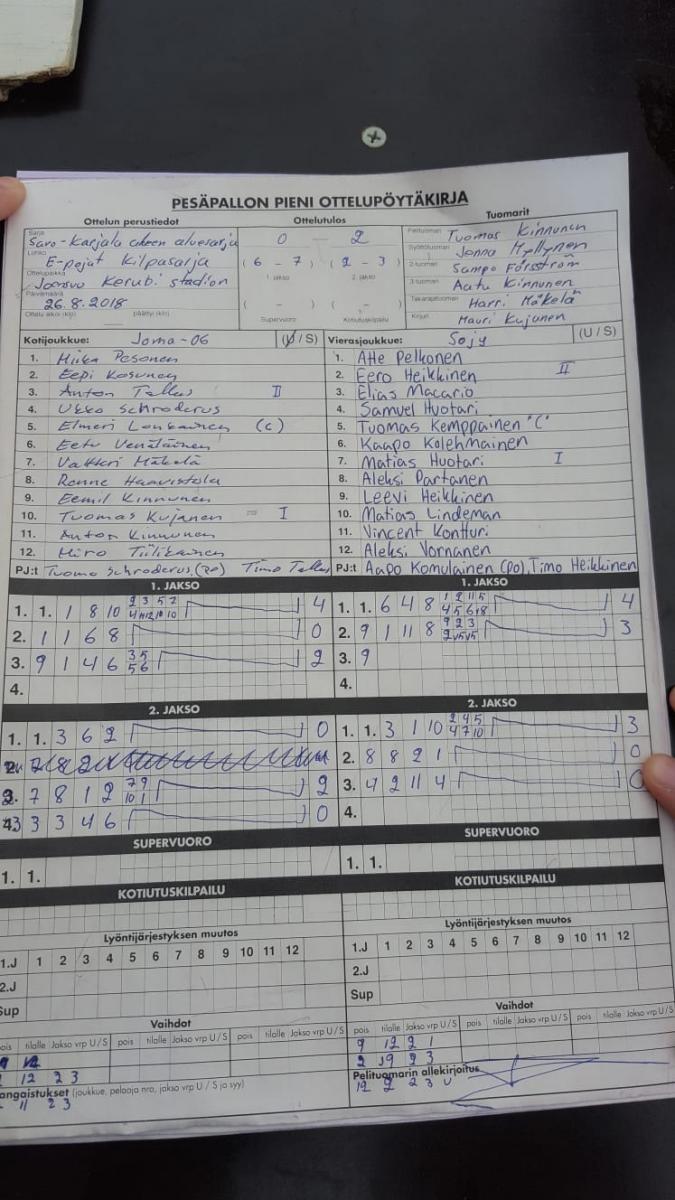 PESÄPALLON PIENI OTTELUPÖYTÄKIRJA
Ottelun perustiedot Ottelutulos Tuomarit
Sarja
Savo-Karjala aluesarja
Lohko
E-pojat Kilpasarja
Ottelupaikka
Joensuu Kerubi stadion
Päivämäärä
26.8.2018
Ottelu alkoi (klo) päättyi (klo)
0 2
( 6 - 7 ) ( 2 - 3 )
1. jakso 2. jakso
( - ) ( - )
Supervuoro Kotiutuskilpailu
Pelituomari Tuomas Kinnunen
Syöttötuomari Jonna Myllynen
2-tuomari Sampo Försström
3-tuomari Aatu Kinnunen
Takarajatuomari Harri Mäkelä
Kirjuri Mauri Kujanen
Kotijoukkue: Joma-06 (U/S)
1. Hiika Pesonen
2. Eepi Kosunen
3. Anton Tellus II
4. Ukko Schroderus
5. Elmeri Loukainen (c)
6. Eetu Venäläinen
7. Valtteri Mäkelä
8. Ronne Haavistola
9. Eemil Kinnunen
10. Tuomas Kujanen I
11. Anton Kinnunen
12. Hiro Tiilikainen
PJ:t Tuomo Schroderus (po) Timo Tellus
Vierasjoukkue: Sojy (U/S)
1. Atte Pelkonen
2. Eero Heikkinen II
3. Elias Macario
4. Samuel Huotari
5. Tuomas Kemppainen "C"
6. Kaapo Kolehmainen
7. Matias Huotari I
8. Aleksi Partanen
9. Leevi Heikkinen
10. Matias Lindeman
11. Vincent Kontturi
12. Aleksi Vornanen
PJ:t Aapo Komulainen (po), Timo Heikkinen
1. JAKSO
1. 1. 1 8 10 2 3 5 7 4
4 11 12 10 10
2. 1 1 6 8 0
3. 9 1 4 6 3 5 2
5 6
4.
1. JAKSO
1. 1. 6 4 8 1 2 11 5 4
4 5 6 18
2. 9 1 11 8 9 2 3 3
3. 9
4.
2. JAKSO
1. 1. 3 6 2 0
3. 7 8 1 2 7 9 2
10 1
3 3 4 6 0
2. JAKSO
1. 1. 3 1 10 2 4 5 3
4 7 10
2. 8 8 2 1 0
3. 4 2 11 4 0
4.
SUPERVUORO
1. 1.
SUPERVUORO
1. 1.
KOTIUTUSKILPAILU
KOTIUTUSKILPAILU
Lyöntijärjestyksen muutos
1.J 1 2 3 4 5 6 7 8 9 10 11 12
2.J
Sup
Lyöntijärjestyksen muutos
1.J 1 2 3 4 5 6 7 8 9 10 11 12
2.J
Sup
Vaihdot
pois tilalle Jakso vrp U/S pois tilalle Jakso vrp U/S pois tilalle Jakso vrp U/S
12 2 3
angaistukset (joukkue, pelaaja nro, jakso vrp U / S ja syy)
11 2 3
Vaihdot
pois tilalle Jakso vrp U/S pois tilalle Jakso vrp U/S pois tilalle Jakso vrp U/S
9 12 2 1
2 19 2 3
Pelituomarin allekirjoitus
12 2 2 3 U